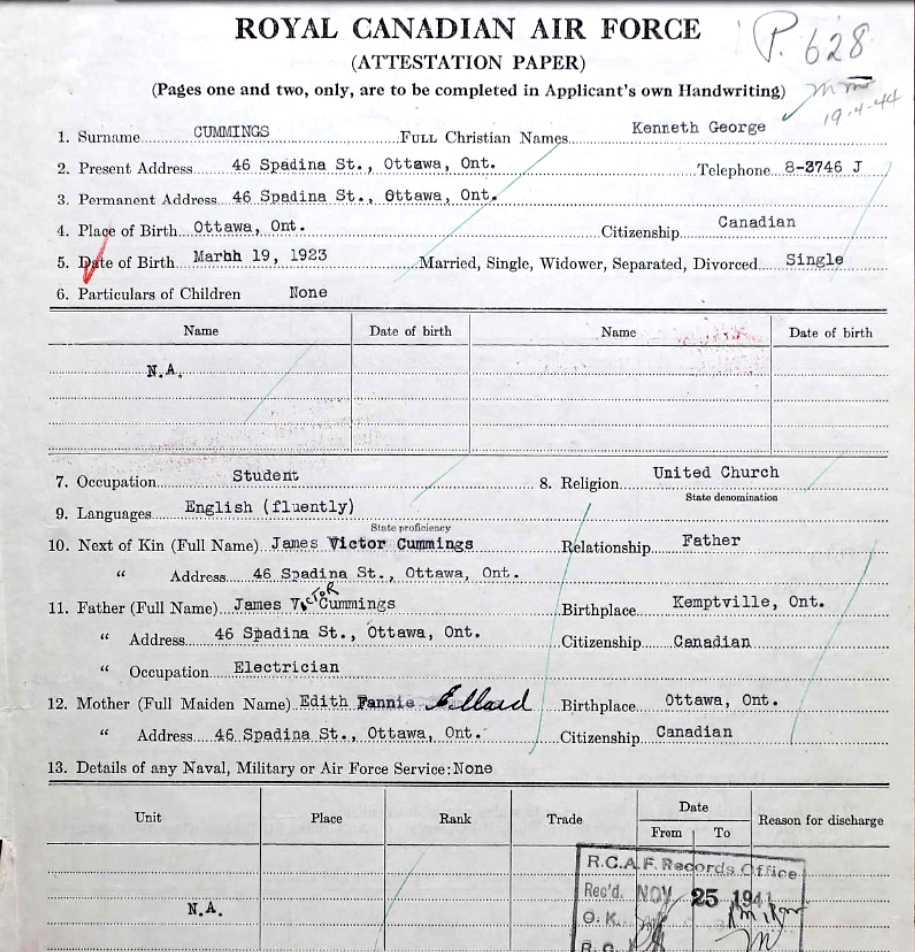 ROYAL CANADIAN AIR FORCE
P. 628
(ATTESTATION PAPER)
(Pages one and two, only, are to be completed in Applicant's own Handwriting)
19-4-44
1. Surname CUMMINGS FULL Christian Names Kenneth George
2. Present Address 46 Spadina St., Ottawa, Ont. Telephone 8-3746 J
3. Permanent Address 46 Spadina St., Ottawa, Ont.
4. Place of Birth Ottawa, Ont. Citizenship Canadian
5. Date of Birth Marhh 19, 1923 Married, Single, Widower, Separated, Divorced Single
6. Particulars of Children None
Name Date of birth Name Date of birth
N.A.
7. Occupation Student 8. Religion United Church
State denomination
9. Languages English (fluently)
State proficiency
10. Next of Kin (Full Name) James Victor Cummings Relationship Father
" Address 46 Spadina St., Ottawa, Ont.
11. Father (Full Name) James VICTOR Cummings Birthplace Kemptville, Ont.
" Address 46 Spadina St., Ottawa, Ont. Citizenship Canadian
" Occupation Electrician
12. Mother (Full Maiden Name) Edith Fannie Ellard Birthplace Ottawa, Ont.
" Address 46 Spadina St., Ottawa, Ont. Citizenship Canadian
13. Details of any Naval, Military or Air Force Service: None
Unit Place Rank Trade Date Reason for discharge
From To
R.C.A.F. Records Office
Rec'd. NOV 25 1941
N.A.
O.K.
R.O.